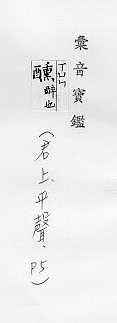 彙音寶鑑
醺醉也
(君上平聲、P5)